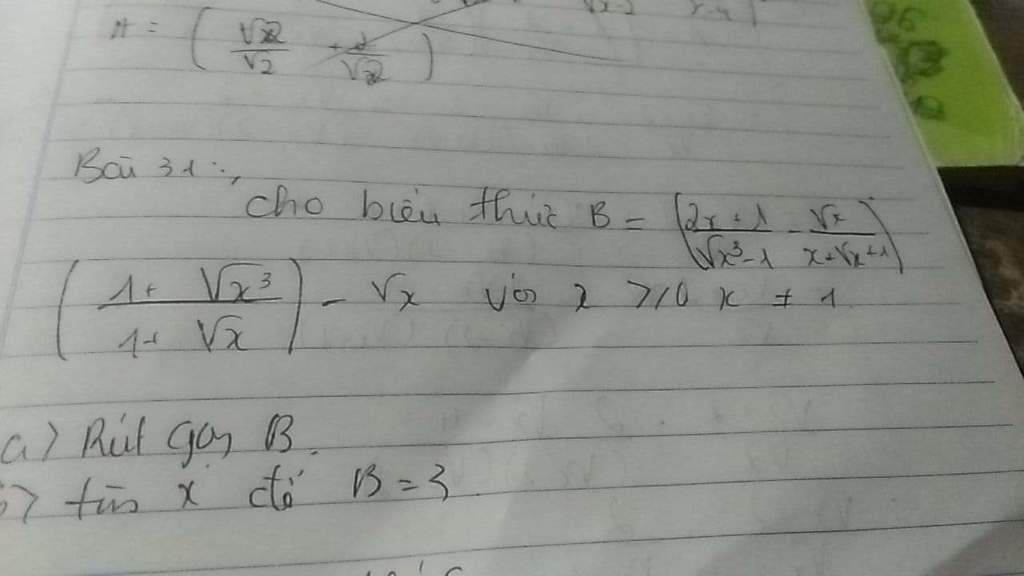 A = (√x/√2 + 2/√x)
Bài 31:,
cho biểu thức B = (2x+1/√x³-1 - √x/x+√x+1)
(1+ √x³/1+ √x) - √x với x >/0 x ≠ 1
a> Rút gọn B.
b> tìm x để B = 3